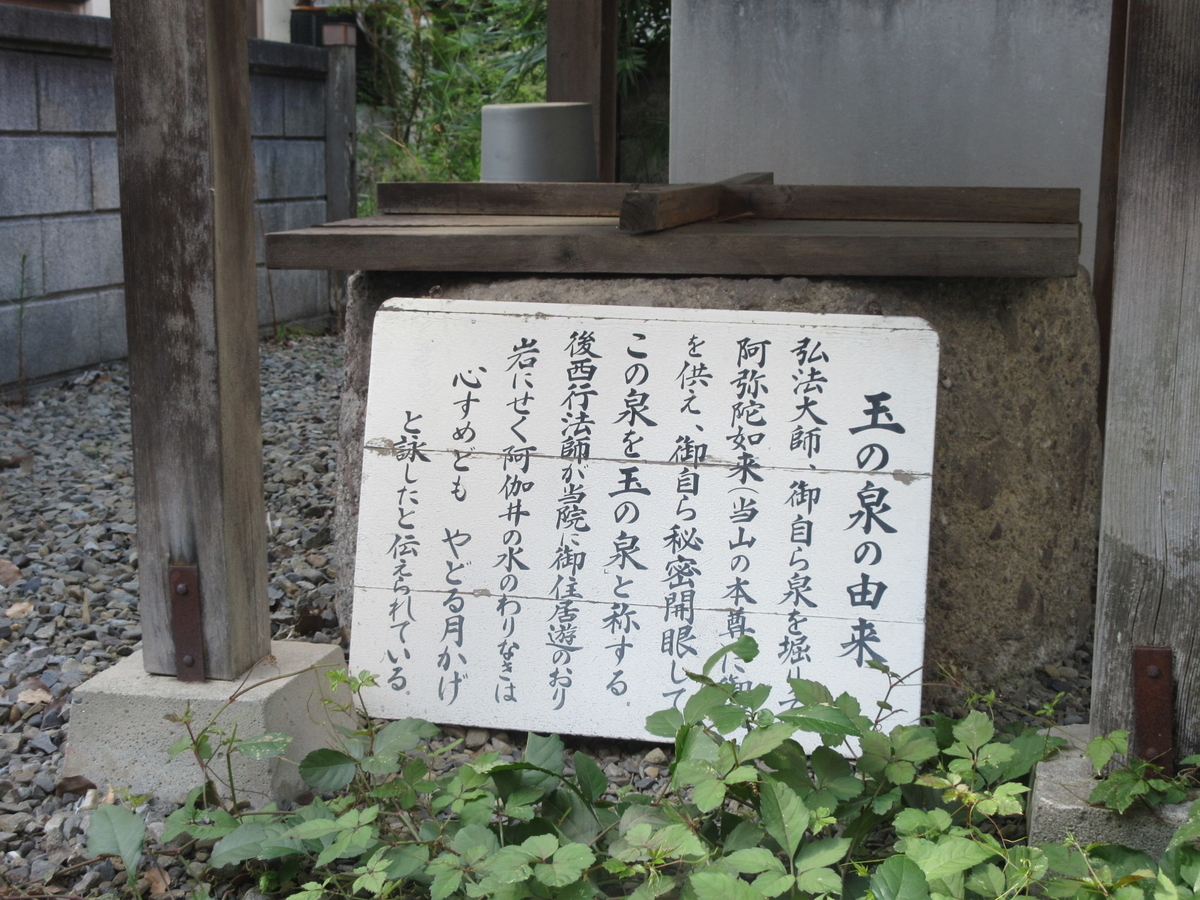 玉の泉の由来
弘法大師、御自ら泉を堀り
阿弥陀如来(当山の本尊)に御
を供え、御自ら秘密開眼して
この泉を「玉の泉」と称する。
後西行法師が当院に御住居遊のおり
岩にせく阿伽井の水のわりなきは
心すめども やどる月かげ
と詠したと伝えられている。